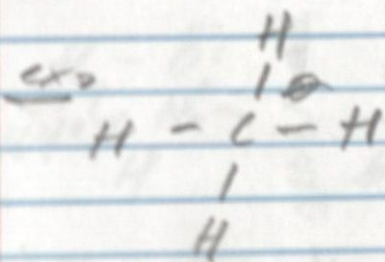 ex:
H
| ⊖
H - C - H
|
H